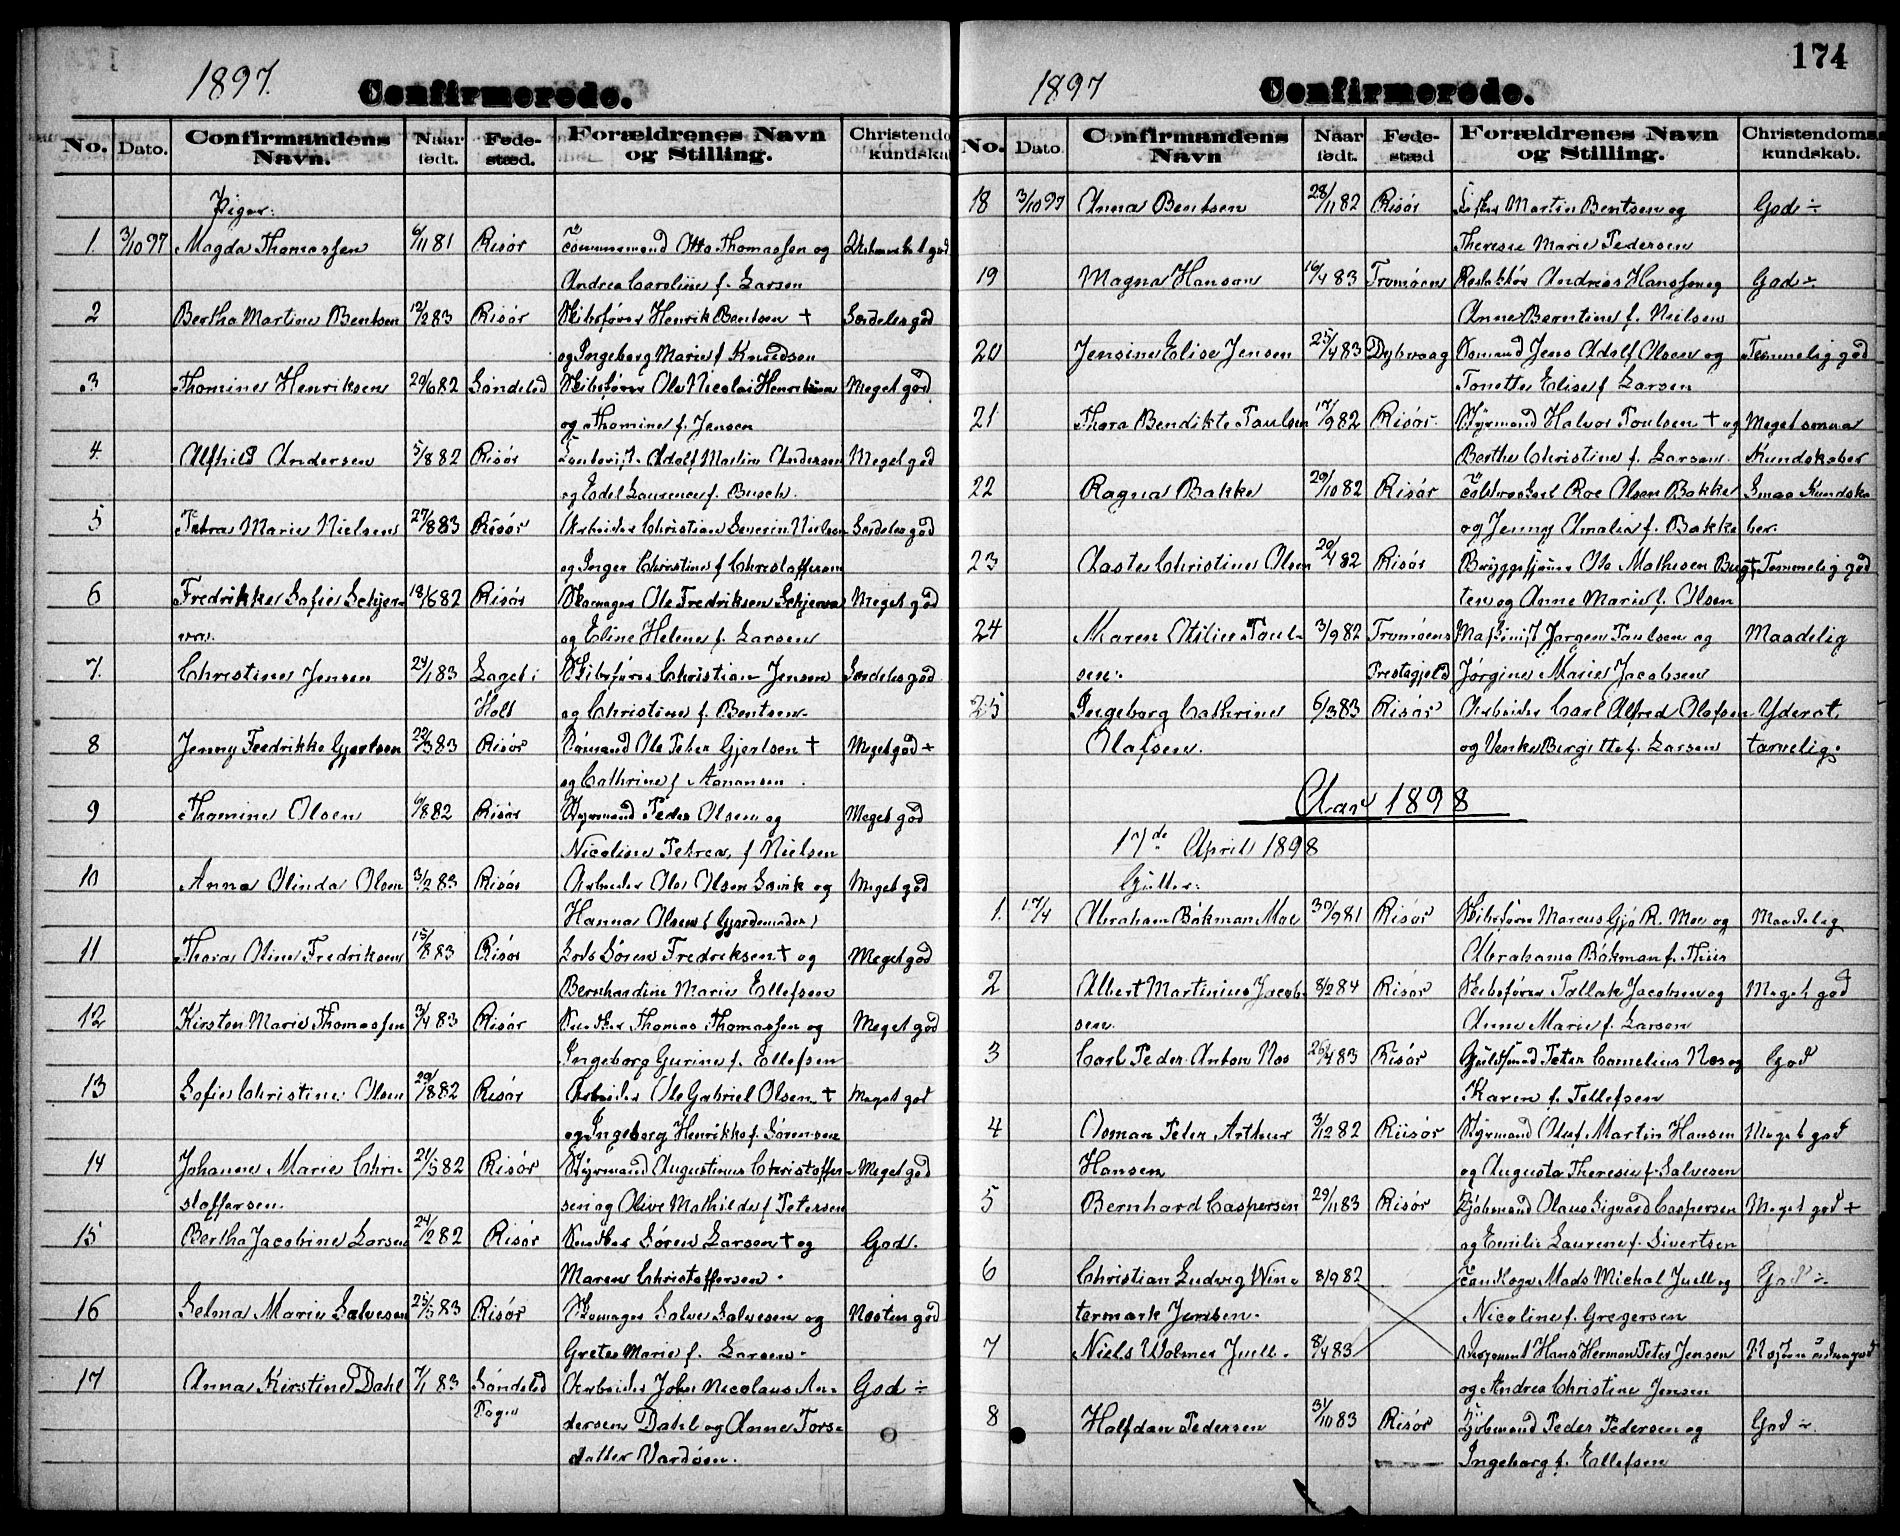 1897.
Confirmerede.
No. Dato. Confirmandens Navn. Naar født. Føde-stæd. Forældrenes Navn og Stilling. Christendo kundskab
Piger:
1. 3/10 97 Magda Thomassen 6/11 81 Risør Tømmermand Otto Thomassen og
Andrea Caroline f. Larsen
2 Bertha Martine Bentsen 12/2 83 Risør Skibsfører Henrik Bentsen + Særdeles god
og Ingeborg Marie f. Knudsen
3 Thomine Henriksen 20/6 82 Søndeled Skibsfører Ole Nicolai Henriksen Meget god
og Thomine f. Jensen
4. Alfhild Andersen 5/8 82 Risør Adolf Martin Andersen Meget god
og Edel Laurence f. Busch.
5 Petra Marie Nielsen 27/8 83 Risør Arbeider Christian Severin Nielsen Særdeles god
og Inger Christine f. Christoffersen
6 Fredrikke Sofie Schjer- 18/6 82 Risør Skomager Ole Fredriksen Meget god
og Eline Helene f. Larsen
7. Christine Jensen 24/1 83 Laget i Skibsfører Christian Jensen Særdeles god
Holt og Christine f. Bentsen.
8 Jenny Fredrikke Gjertsen 22/3 83 Risør Sømand Ole Peter Gjertsen + Meget god +
og Cathrine f. Aanonsen.
9 Thomine Olsen 6/8 82 Risør Styrmand Peder Olsen og Meget god
Nicoline Petrea, f Nielsen
10 Anna Olinda Olsen 3/2 83 Risør Arbeider Ole Olsen og Meget god
Hanna Olsen (Gjordemoder)
11 Thora Oline Fredriksen 15/8 83 Risør Lods Sören Fredriksen + og Meget god
Bernhardine Marie Ellefsen
12 Kirsten Marie Thomassen 3/4 83 Risør Snedker Thomas Thomassen og Meget god
Ingeborg Gurine f. Ellefsen
13 Sofie Christine Olsen 20/8 82 Risør Arbeider Ole Gabriel Olsen + Meget god
og Ingeborg Henrikke f. Sörensen
14 Johanne Marie Chri- 21/5 82 Risør Styrmand Augustinus Christoffer- Meget god
stoffersen. sen og Olive Mathilde f Petersen
15 Bertha Jacobine Larsen 24/2 82 Risør Snedker Sören Larsen + og God.
Maren Christoffersen.
16 Selma Marie Salvesen 25/3 83 Risør Skomager Salve Salvesen og Næsten god
Grete Marie f. Larsen.
17 Anna Kirstine Dahl 7/1 83 Søndeled Arbeider John Nicolaus An- God ÷
dersen Dahl og Anne Tors-
datter Vardöen.
1897
Confirmerede.
174
No. Dato Confirmandens Navn Naar født. Føde-stæd Forældrenes Navn og Stilling. Christendoms kundskab.
18 3/10 97 Anna Bentsen 28/11 82 Risør Martin Bentsen og God ÷
Therese Marie Pedersen
19 Magna Hansen 16/4 83 Tromøen Andreas Hanssen og God ÷
Anne Berntine f. Nielsen
20 Jensine Elise Jensen 25/4 83 Dybvaag Sømand Jens Adolf Olsen og Temmelig god
Tonette Elise f. Larsen
21 Thora Bendikte Paulsen 17/9 82 Risør. Styrmand Halvor Poulsen + og Meget smaa
Berthe Christine f. Larsen. Kundskaber
22 Ragna Bakke 20/10 82 Risør Roe Olsen Bakke Smaa Kundska
og Jenny Amalia f. Bakke ber.
23 Aaste Christine Olsen 20/4 82 Risør Bryggesjouer Ole Mathisen Temmelig god
og Anne Marie f. Olsen
24 Maren Otilie Poul- 3/9 82 Tromøens Maskinist Jørgen Paulsen og Maadelig
sen. Prestegjeld Jørgine Marie Jacobsen
25 Ingeborg Cathrine 6/3 83 Risør Arbeider Carl Alfred Olafsen Yderst
Olafsen. og Venke Birgitte f. Larsen tarvelig.
Aar 1898
17de April 1898
Gutter:
1. 17/4 Abraham Bökman Moe 30/9 81 Risør Skibsfører Marcus Gjö R. Moe og Maadelig
Abrahame Bökman f. Thiis
2 Albert Martinius Jacob- 8/2 84 Risør Skibsfører Tallak Jacobsen og Meget god
sen. Anne Marie f. Larsen
3 Carl Peder Anton Næs 26/4 83 Risør Guldsmed Peter Cornelius Næs og God
Karen f. Tellefsen
4 Osman Peter Arthur 3/12 82 Riisør Styrmand Oluf Martin Hansen Meget god
Hansen og Augusta Therese f. Salvesen
5 Bernhard Caspersen 29/11 83 Risør Kjöbmand Olaus Sigvard Caspersen Meget god +
og Emilie Laurene f. Sivertsen
6 Christian Ludvig Win- 8/9 82 Tandlæge Mads Michal Juell og God ÷
termark Jensen. Nicoline f. Gregersen
7 Niels Wolmer Juell. 8/4 83 Hans Herman Peter Jensen
og Andrea Christine Jensen
8 Halfdan Pedersen 31/10 83 Risør Kjøbmand Peder Pedersen og God ÷
Ingeborg f. Ellefsen